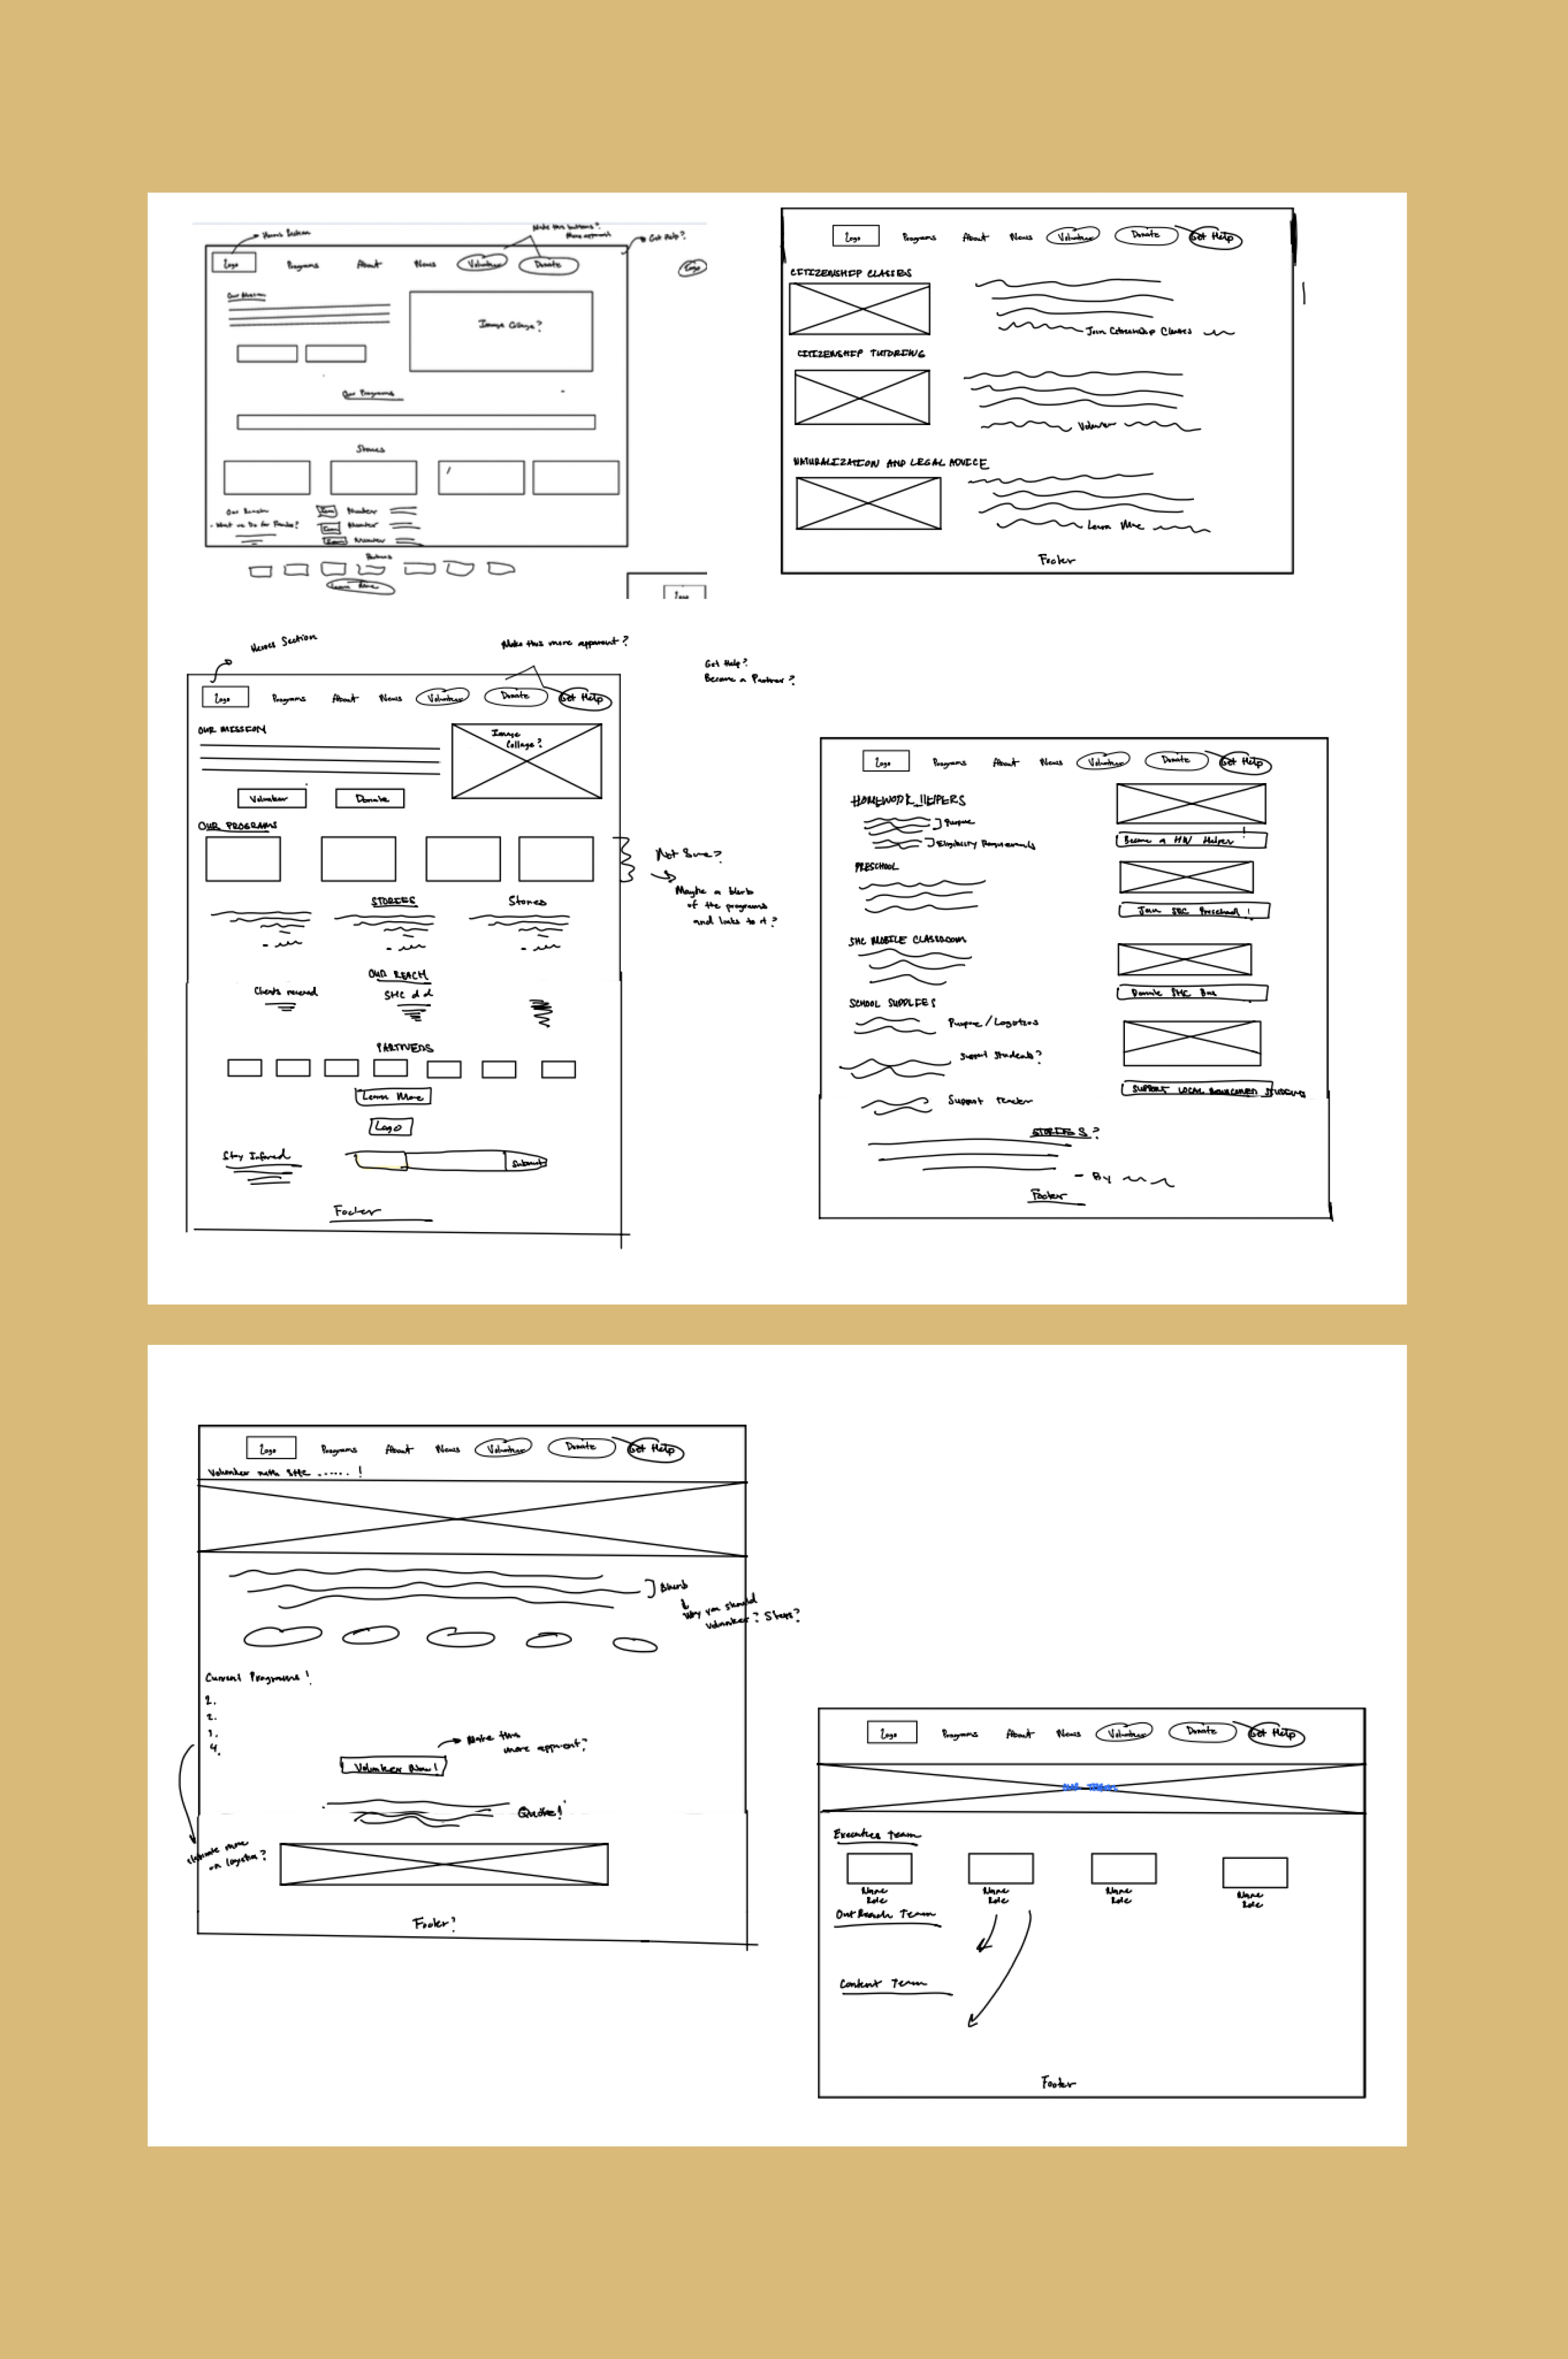 Make this buttons?
More apparent
Get Help?
Logo Programs About News Volunteer Donate
Logo
Our Mission
Image Collage?
Our Programs
Stories
Our Reach
- What we Do for
Icon Number
Icon Number
Icon Number
Partners
Learn More
Logo
Logo Programs About News Volunteer Donate Get Help
CITIZENSHIP CLASSES
Join Citizenship Classes
CITIZENSHIP TUTORING
Volunteer
NATURALIZATION AND LEGAL ADVICE
Learn More
Footer
Heros Section
Make this more apparent?
Get Help?
Become a Partner?
Logo Programs About News Volunteer Donate Get Help
OUR MISSION
Image
Collage?
Volunteer Donate
OUR PROGRAMS
Not Sure?
Maybe a blurb
of the programs
and links to it?
STORIES Stories
OUR REACH
Clients received
SHC did
PARTNERS
Learn More
Logo
Stay Informed
Submit
Footer
Logo Programs About News Volunteer Donate Get Help
HOMEWORK HELPERS
Purpose
Eligibility Requirements
Become a HW Helper!
PRESCHOOL
Join SHC Preschool!
SHC MOBILE CLASSROOM
Donate SHC Bus
SCHOOL SUPPLIES
Purpose/Logistics
Support Students?
SUPPORT LOCAL STUDENTS
Support teacher
STORIES?
- By
Footer
Logo Programs About News Volunteer Donate Get Help
Volunteer with SHC ......!
Blurb
Why you should
volunteer? Steps?
Current Programs!
2.
2.
3.
4.
Make this
more apparent?
Volunteer Now!
Quote!
more
on logistics?
Footer?
Logo Programs About News Volunteer Donate Get Help
OUR TEAM
Executive Team
Name Name Name Name
Role Role Role Role
OutReach Team
Content Team
Footer